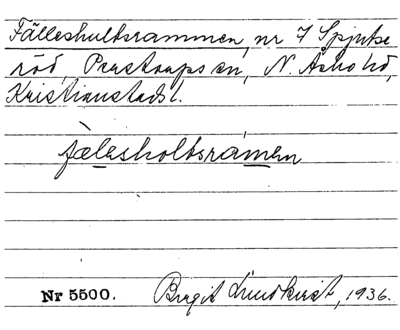 Fälleshultsrammen, nr 7 Spjutse
röd, Perstorps sn, N. Åsbo hd,
Kristianstads l.
fàlesholtsrámen
Nr 5500. Birgit Lundkvist, 1936.